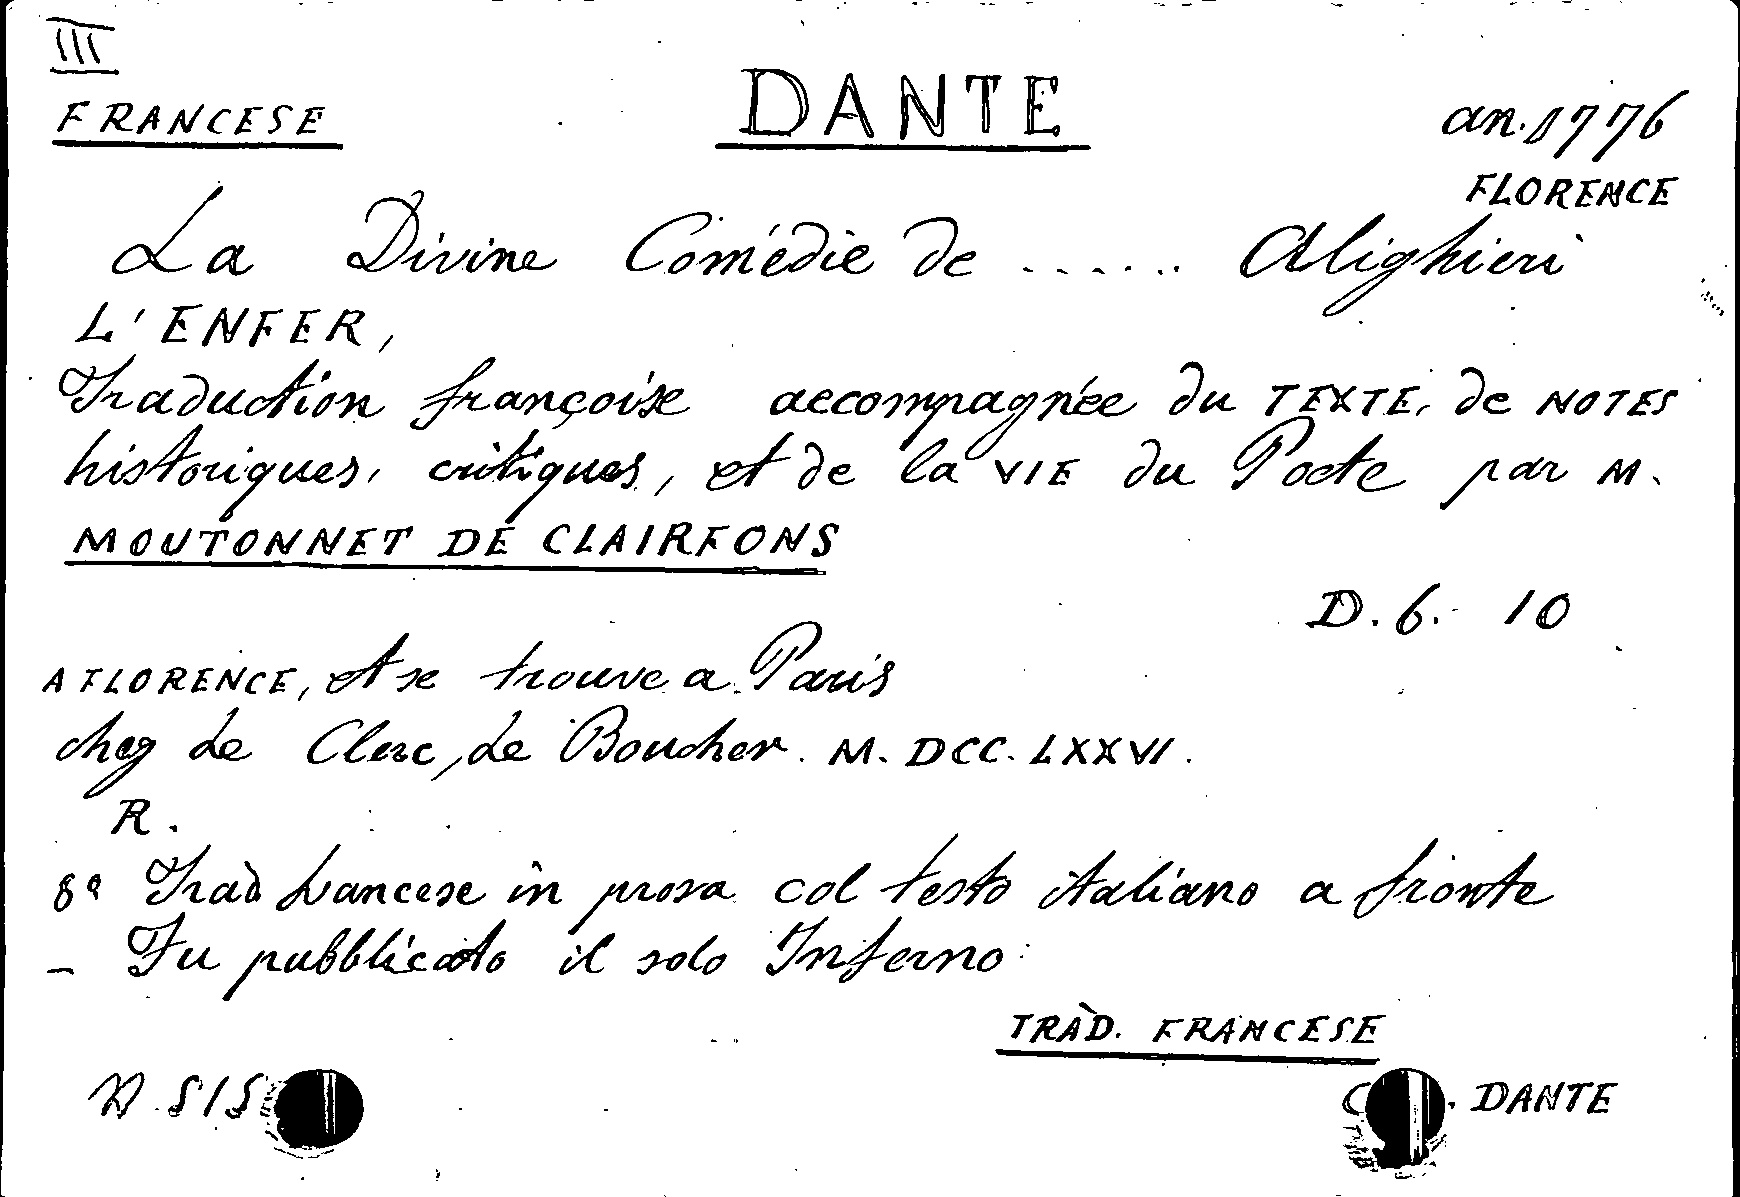 III
FRANCESE
DANTE
an. 1776
FLORENCE
La Divine Comédie de ...... Alighieri
L'ENFER,
Traduction françoise accompagnée du TEXTE, de NOTES
historiques, critiques, et de la VIE du Poete par M.
MOUTONNET DE CLAIRFONS
D. 6. 10
A FLORENCE, et se trouve a Paris
chez Le Clerc, Le Boucher. M. DCC. LXXVI.
R.
8° Trad francese in prosa col testo italiano a fronte
- Fu pubblicato il solo Inferno
TRAD. FRANCESE
DANTE